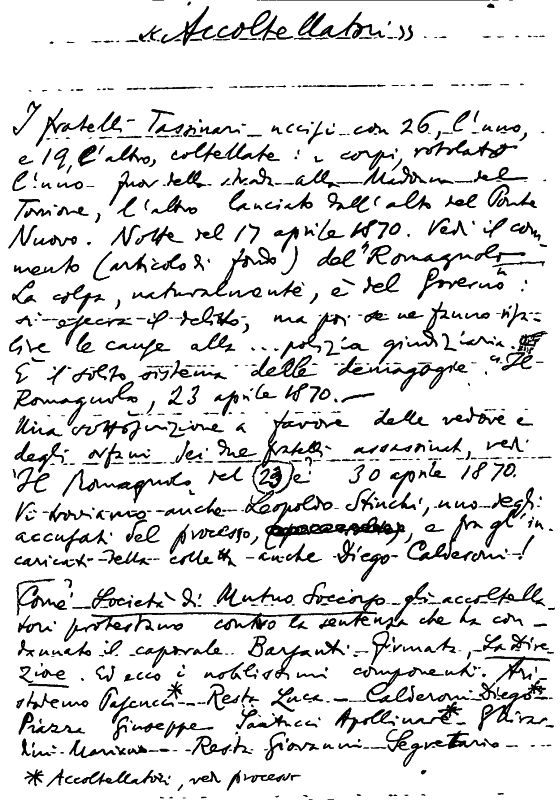 «Accoltellatori»
I fratelli Tassinari uccisi con 26, l'uno,
e 19, l'altro, coltellate: i corpi, rotolato
l'uno fuor della strada alla Madonna del
Torrione, l'altro lanciato dall'alto del Ponte
Nuovo. Notte del 17 aprile 1870. Vedi il com-
mento (articolo di fondo) del "Romagnolo
La colpa, naturalmente, è del Governo":
si esecra il delitto, ma poi se ne fanno risa-
lire le cause alla ... polizia giudiziaria.
È il solito sistema delle demagogie. "Il
Romagnolo, 23 aprile 1870.—
Una sottoscrizione a favore delle vedove e
degli orfani dei due fratelli assassinati, vedi
"Il Romagnolo" del 23 e 30 aprile 1870.
Vi troviamo anche Leopoldo Stinchi, uno degli
accusati del processo, e fra gl'in-
caricati della colletta anche Diego Calderoni!
Come Società di Mutuo Soccorso gli accoltella-
tori protestano contro la sentenza che ha con-
dannato il caporale Barganti. Firmata, La Dire-
zione. Ed ecco i nobilissimi componenti. Ari-
stodemo Pascucci* — Resta Luca — Calderoni Diego*
Piazza Giuseppe Santucci Apollinare* — Ghirar-
dini Mariano — Resta Giovanni Segretario —
* Accoltellatori, vedi processo